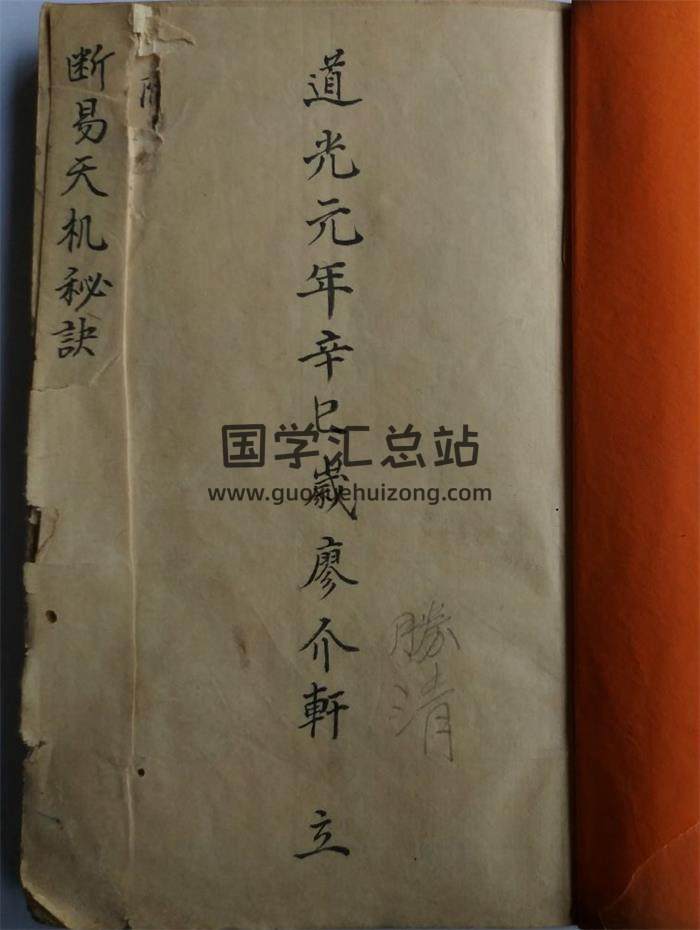 勝清
道光元年辛巳歲廖介軒 立
断易天机秘訣
国学汇总站
www.guoxuehuizong.com